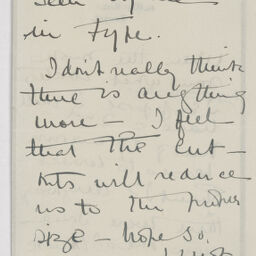 in Type.
I don't really think
there is anything
more — I feel
that the cut-
outs will reduce
us to the proper
size — hope so.